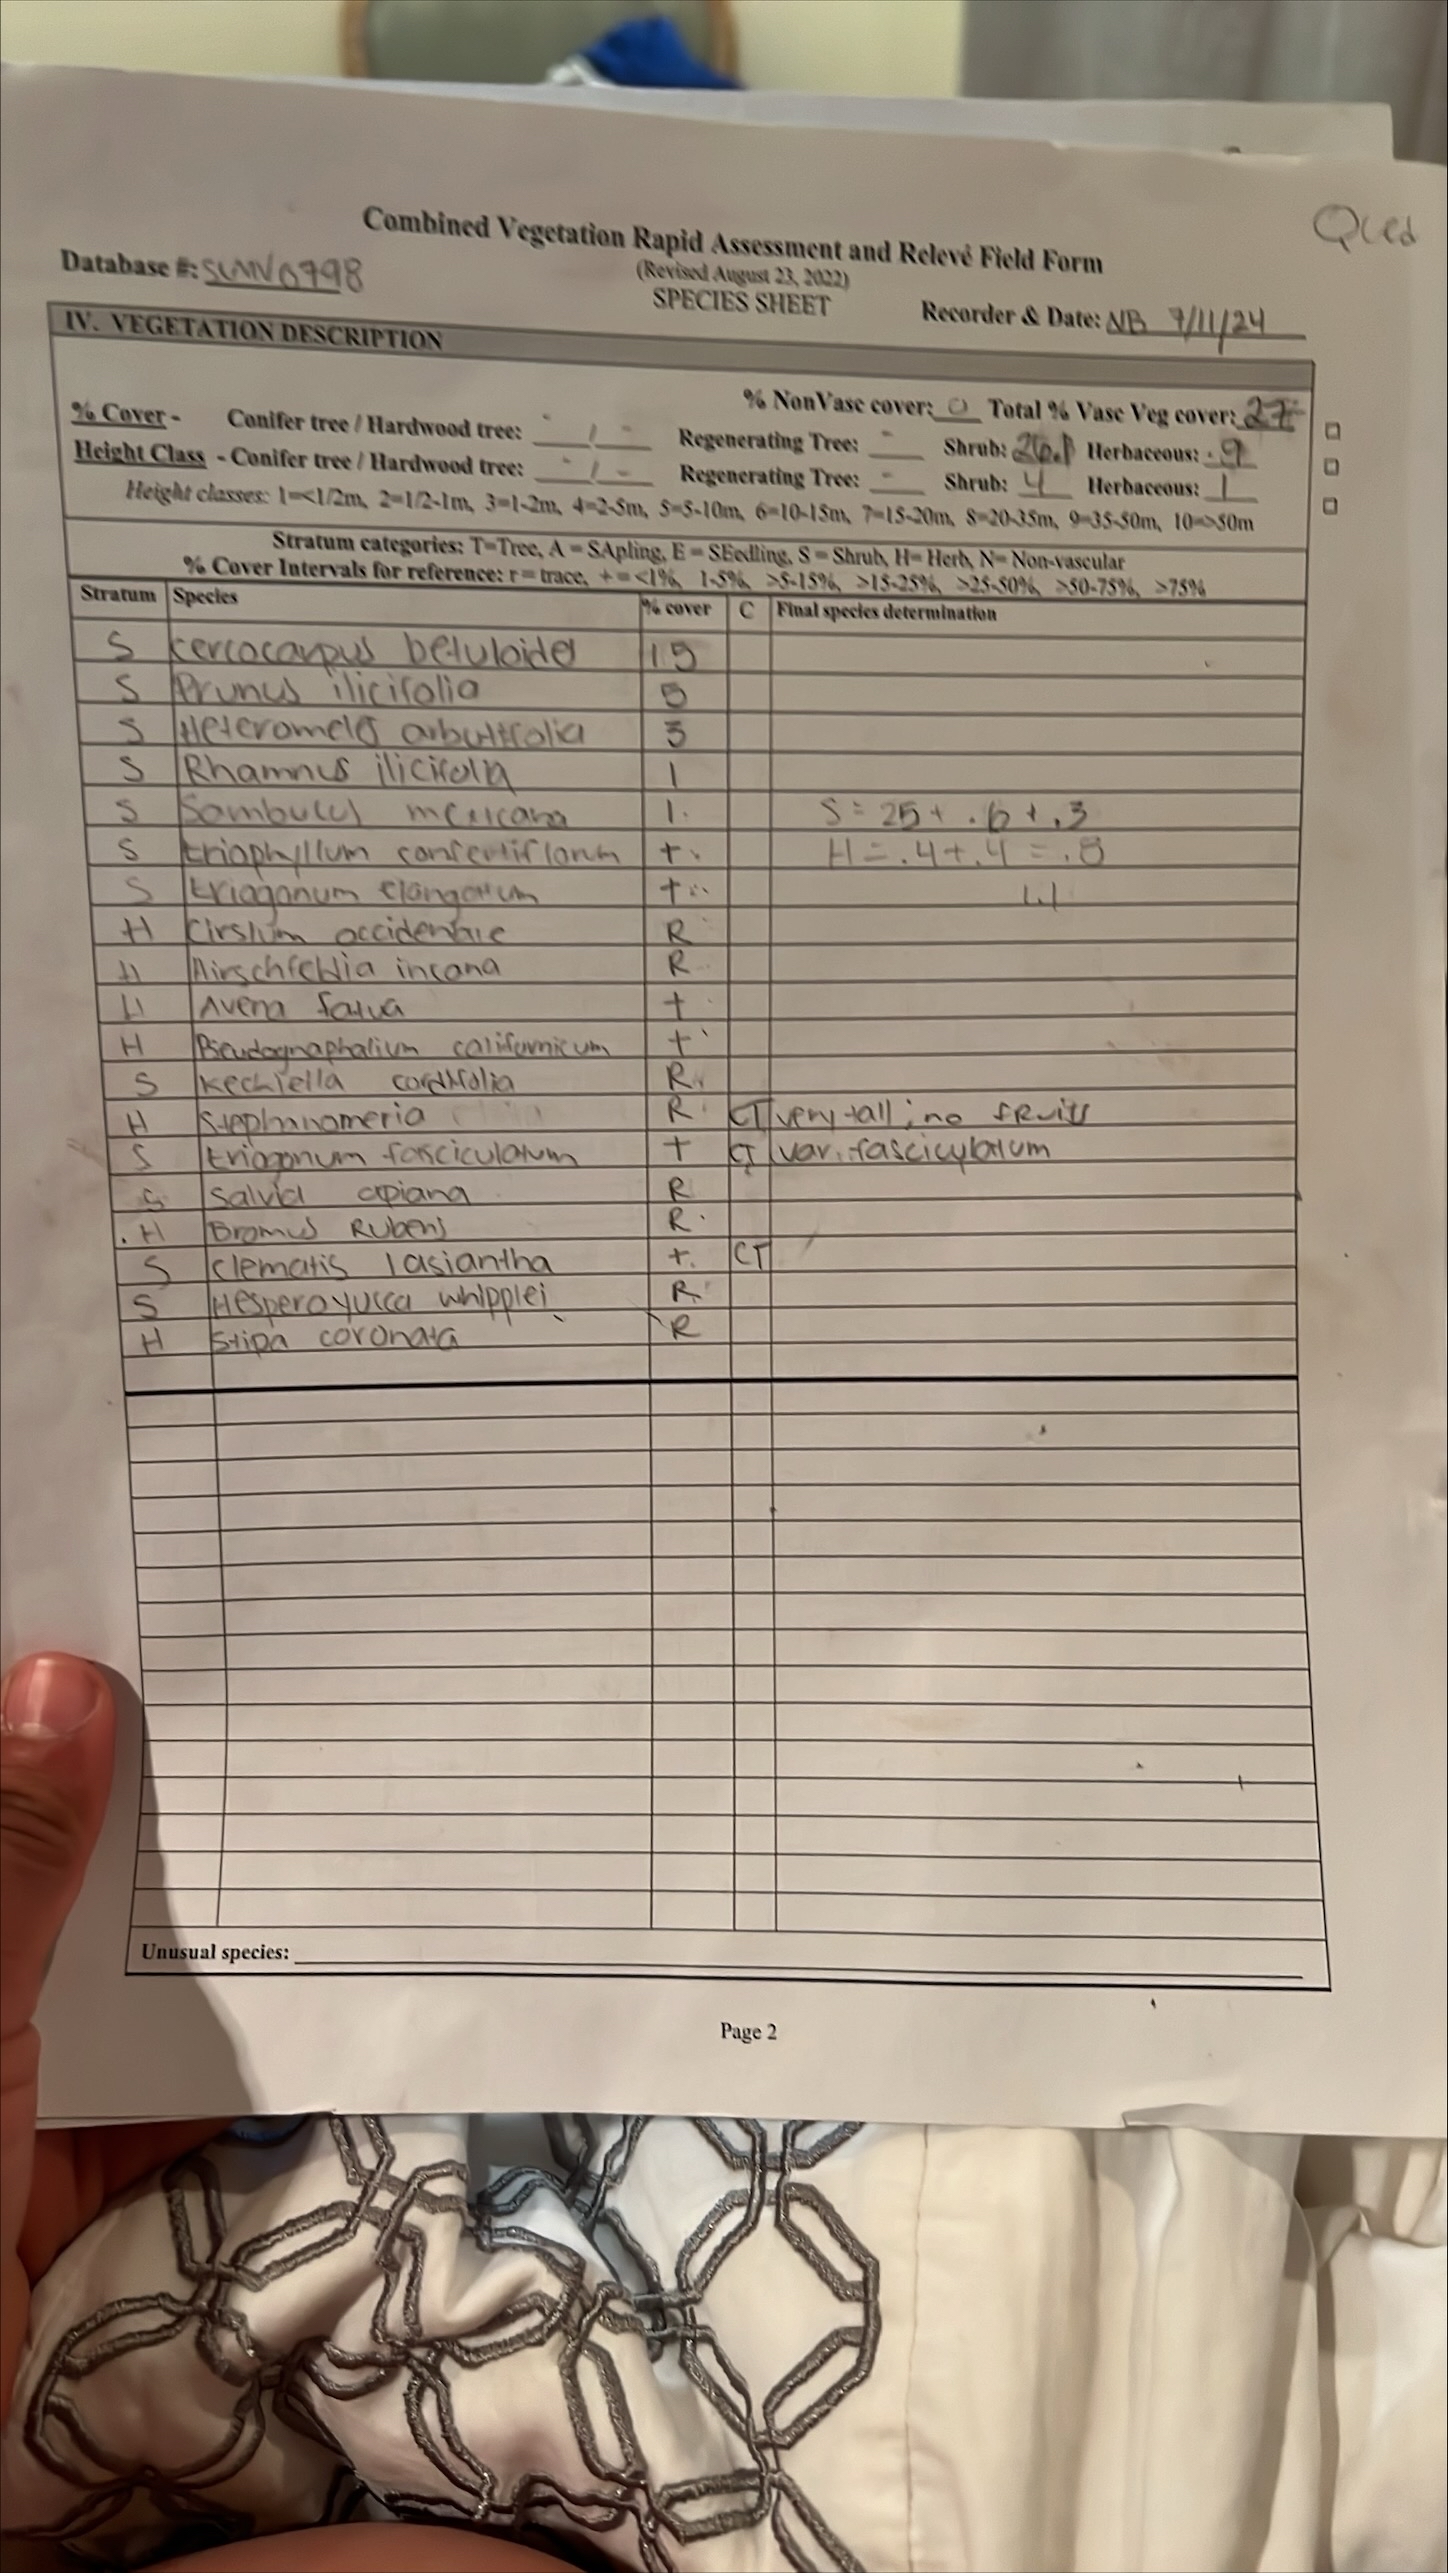 Qced
Combined Vegetation Rapid Assessment and Relevé Field Form
(Revised August 23, 2022)
Database #: SUNV0798
SPECIES SHEET
Recorder & Date: NB 9/11/24
IV. VEGETATION DESCRIPTION
% NonVasc cover: 0 Total % Vasc Veg cover: 27
% Cover - Conifer tree / Hardwood tree: - / - Regenerating Tree: - Shrub: 26.1 Herbaceous: .9
Height Class - Conifer tree / Hardwood tree: - / - Regenerating Tree: - Shrub: 4 Herbaceous: 1
Height classes: 1=<1/2m, 2=1/2-1m, 3=1-2m, 4=2-5m, 5=5-10m, 6=10-15m, 7=15-20m, 8=20-35m, 9=35-50m, 10=>50m
Stratum categories: T=Tree, A = SApling, E = SEedling, S = Shrub, H= Herb, N= Non-vascular
% Cover Intervals for reference: r = trace, + = <1%, 1-5%, >5-15%, >15-25%, >25-50%, >50-75%, >75%
Stratum Species % cover C Final species determination
S Cercocarpus betuloides 15
S Prunus ilicifolia 5
S Heteromeles arbutifolia 3
S Rhamnus ilicifolia 1
S Sambucus mexicana 1 S = 25 + .6 + .3
S Eriophyllum confertiflorum + H = .4 + .4 = .8
S Eriogonum elongatum + 1.1
H Cirsium occidentale R
H Hirschfeldia incana R
H Avena fatua +
H Pseudognaphalium californicum +
S Keckiella cordifolia R
H Stephanomeria R CT very tall; no fruits
S Eriogonum fasciculatum + CT var. fasciculatum
S Salvia apiana R
H Bromus Rubens R
S Clematis lasiantha + CT
S Hesperoyucca whipplei R
H Stipa coronata R
Unusual species:
Page 2